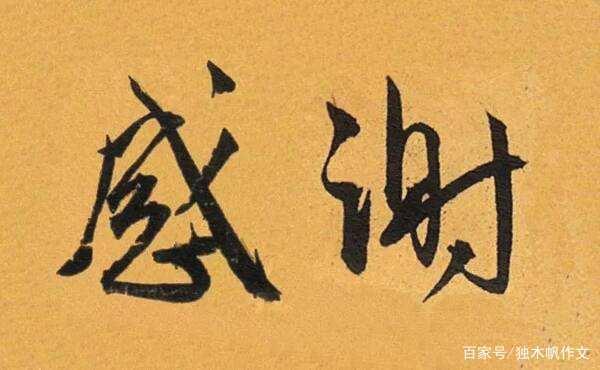 感谢
百家号/独木帆作文